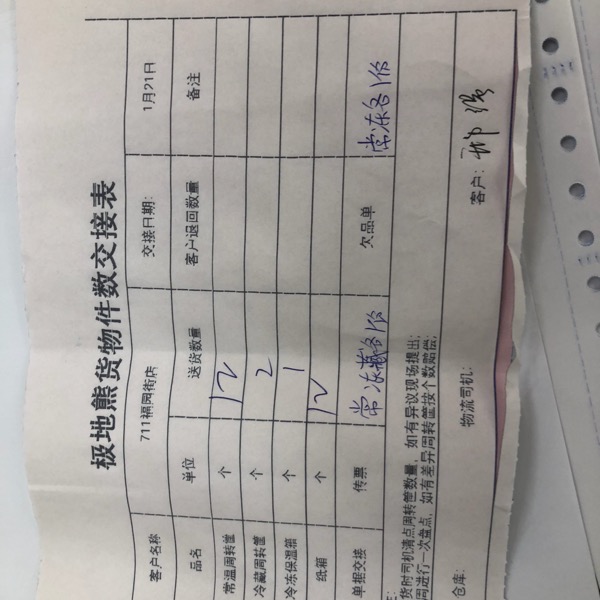 极地熊货物件数交接表
客户名称 711福园街店 交接日期: 1月21日
品名 单位 送货数量 客户退回数量 备注
常温周转筐 个 12
冷藏周转筐 个 2
冷冻保温箱 个 1
纸箱 个 12
单据交接 传票 常冻藏各1份 欠品单 常冻各1份
货时司机清点周转筐数量，如有异议现场提出;
周进行一次盘点，如有差异周转筐按个数赔偿;
仓库: 物流司机: 客户: